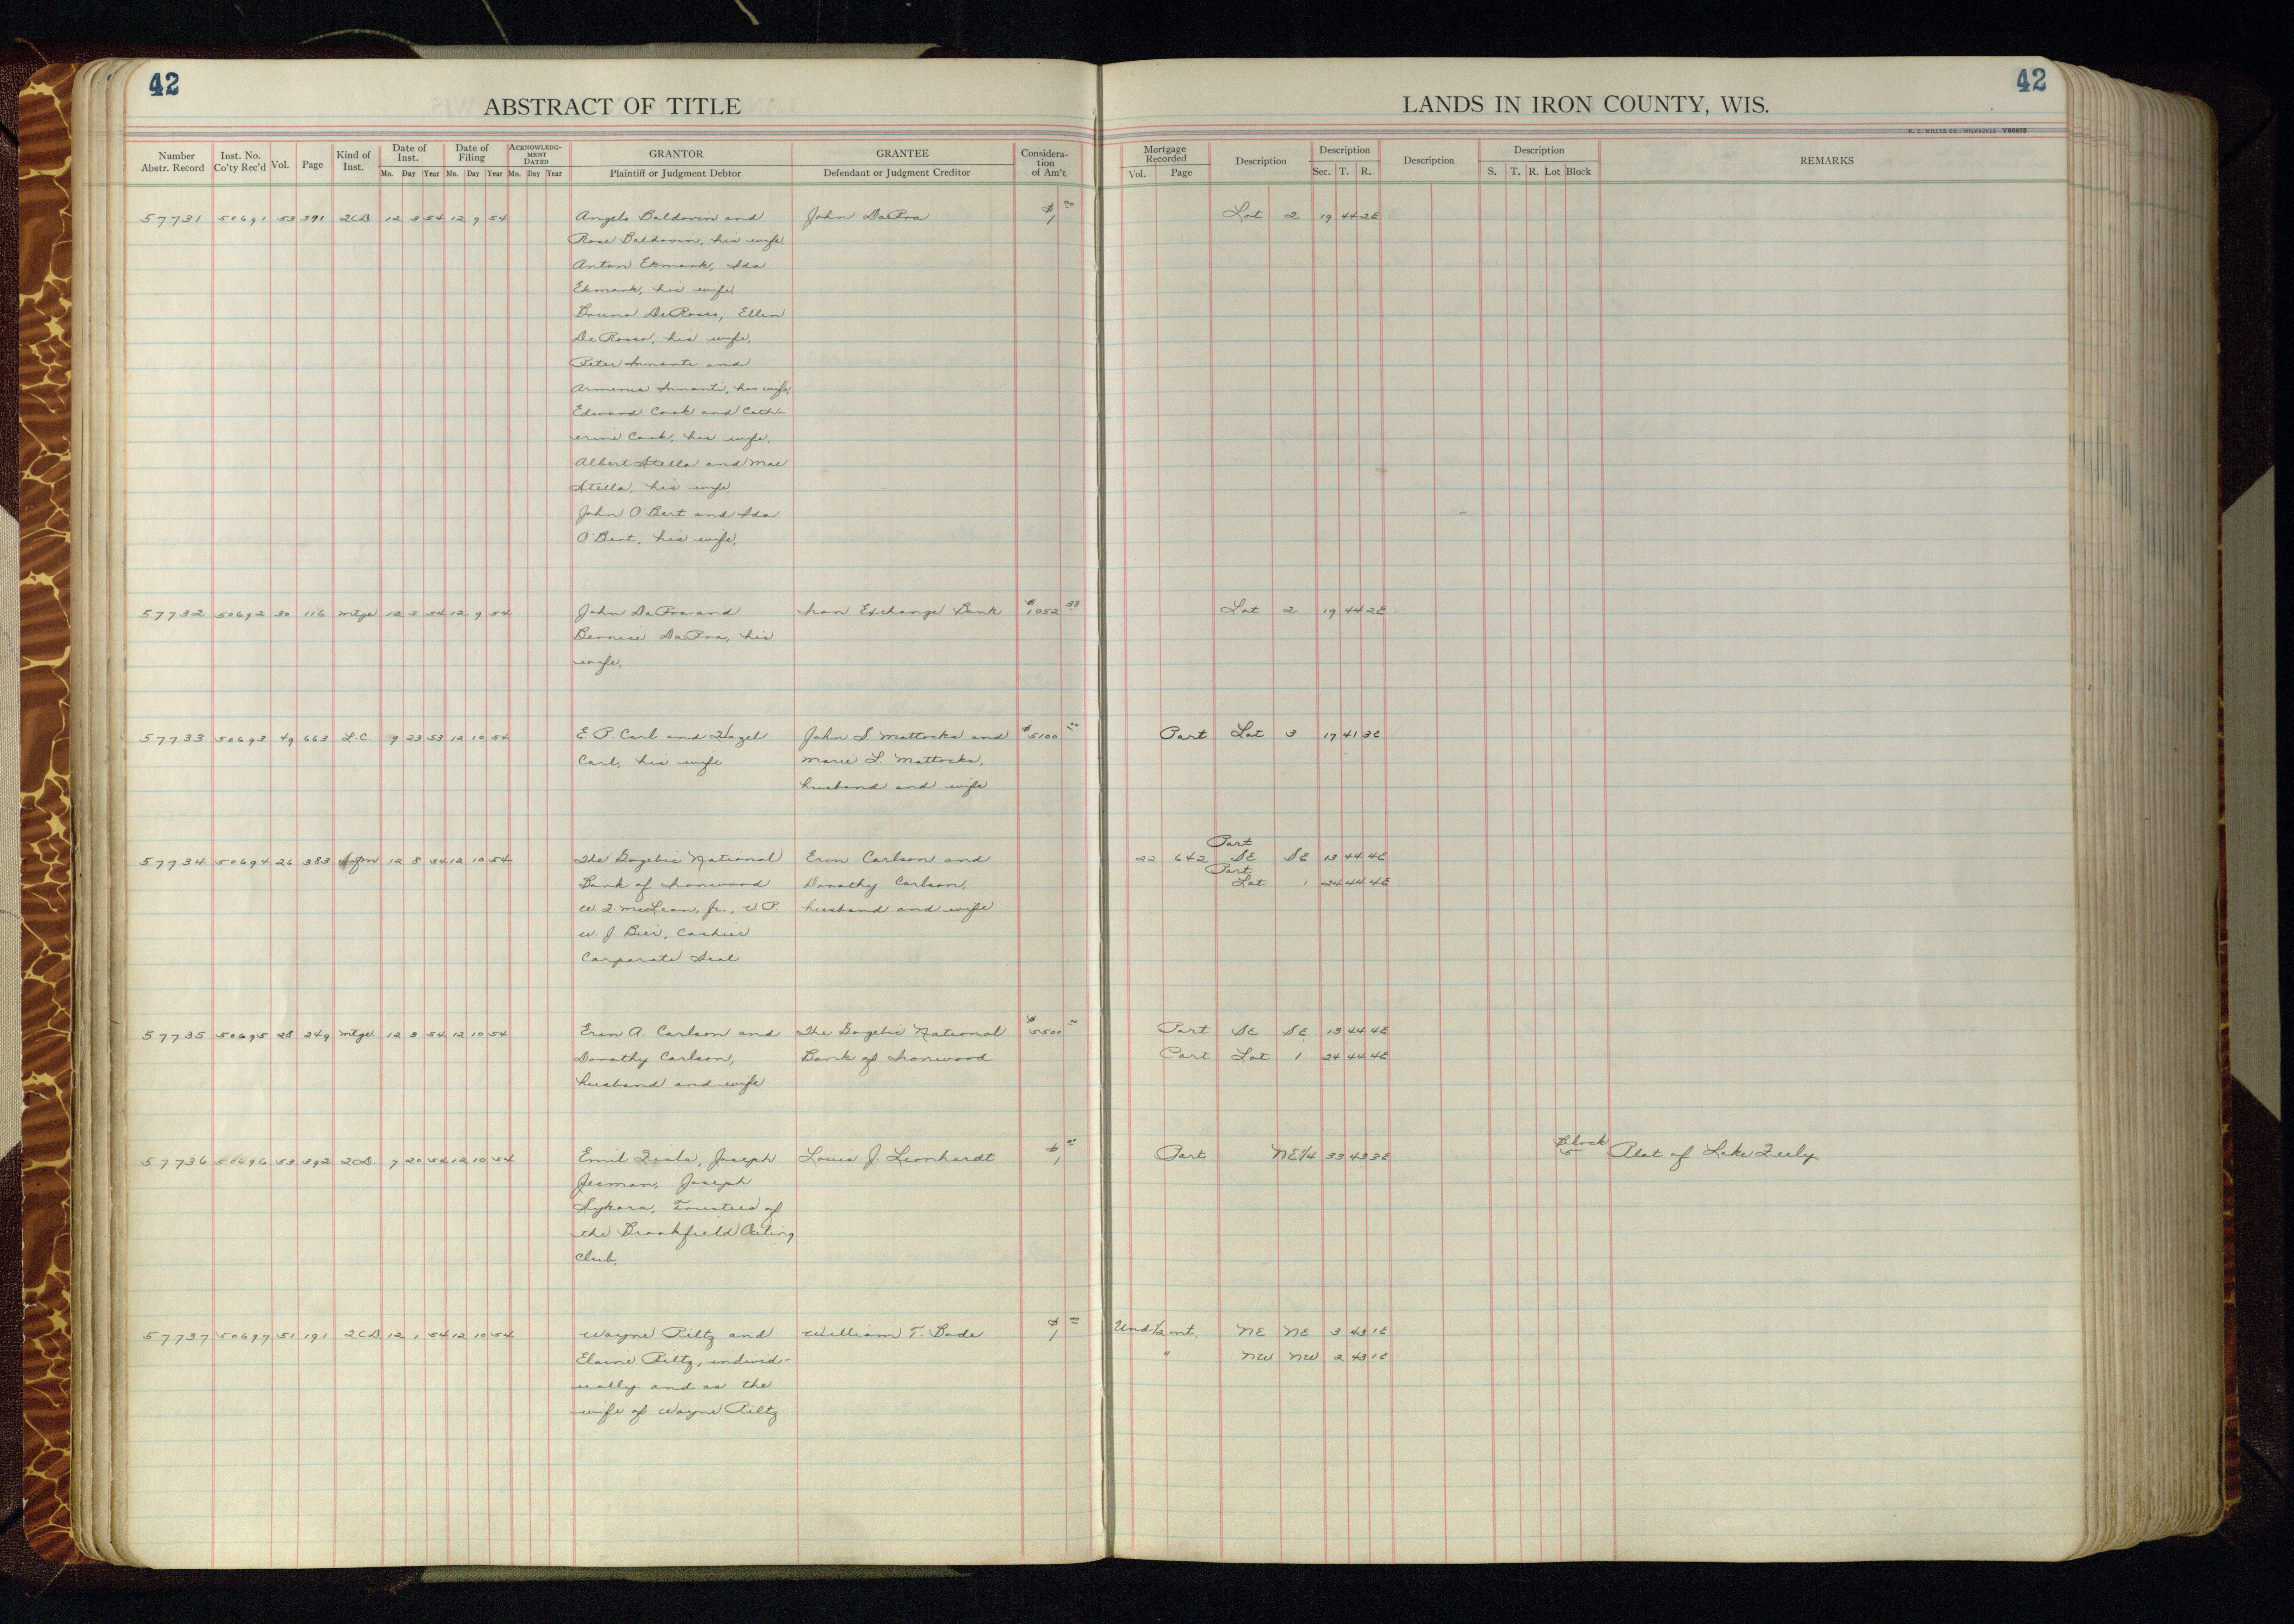 42
42
ABSTRACT OF TITLE
LANDS IN IRON COUNTY, WIS.
H. C. MILLER CO., MILWAUKEE Y66855
Number Abstr. Record Inst. No. Co'ty Rec'd Vol. Page Kind of Inst. Date of Inst. Mo. Day Year Date of Filing Mo. Day Year ACKNOWLEDGMENT DATED Mo. Day Year GRANTOR Plaintiff or Judgment Debtor GRANTEE Defendant or Judgment Creditor Consideration of Am't Mortgage Recorded Vol. Page Description Description Sec. T. R. Description Description S. T. R. Lot Block REMARKS
57731 50691 53 391 2CD 12 3 54 12 9 54 Angelo Baldovin and John DaPra $1 00 Lot 2 19 44 2E
Rose Baldovin, his wife
Anton Ekmark, Ida
Ekmark, his wife
Bruno DeRosso, Ellen
DeRosso, his wife,
Peter Innanti and
Armenia Innanti, his wife,
Edward Cook and Cath-
erine Cook, his wife,
Albert Stella and Mae
Stella, his wife,
John O'Bert and Ida
O'Bert, his wife,
57732 50692 30 116 Mtge 12 3 54 12 9 54 John DaPra and Iron Exchange Bank $1052 38 Lot 2 19 44 2E
Bernice DaPra, his
wife,
57733 50693 49 663 L.C. 9 23 53 12 10 54 E. P. Carl and Hazel John S Mattocks and $5100 00 Part Lot 3 17 41 3E
Carl, his wife Marie L. Mattocks,
husband and wife
Part
57734 50694 26 383 12 8 54 12 10 54 The Gogebic National Erin Carlson and 22 642 SE SE 13 44 4E
Part
Bank of Ironwood Dorothy Carlson, Lot 1 24 44 4E
W. L. McLean, Jr., V.P. husband and wife
W. J. Bier, Cashier
Corporate Seal
57735 50695 28 249 Mtge. 12 3 54 12 10 54 Erin A. Carlson and The Gogebic National $5500 00 Part SE SE 13 44 4E
Dorothy Carlson, Bank of Ironwood Part Lot 1 24 44 4E
husband and wife
Block
57736 50696 53 392 2CD. 7 20 54 12 10 54 Emil Fiala, Joseph Louis J. Leonhardt $1 00 Part NE1/4 33 43 3E 5 Plat of Lake Feely
Jecman, Joseph
Sykora, Trustees of
the Brookfield Outing
Club,
57737 50697 51 191 2CD 12 1 54 12 10 54 Wayne Piltz and William T. Bode $1 00 Und 1/2 int. NE NE 3 43 1E
Elaine Piltz, individ- " NW NW 2 43 1E
ually and as the
wife of Wayne Piltz